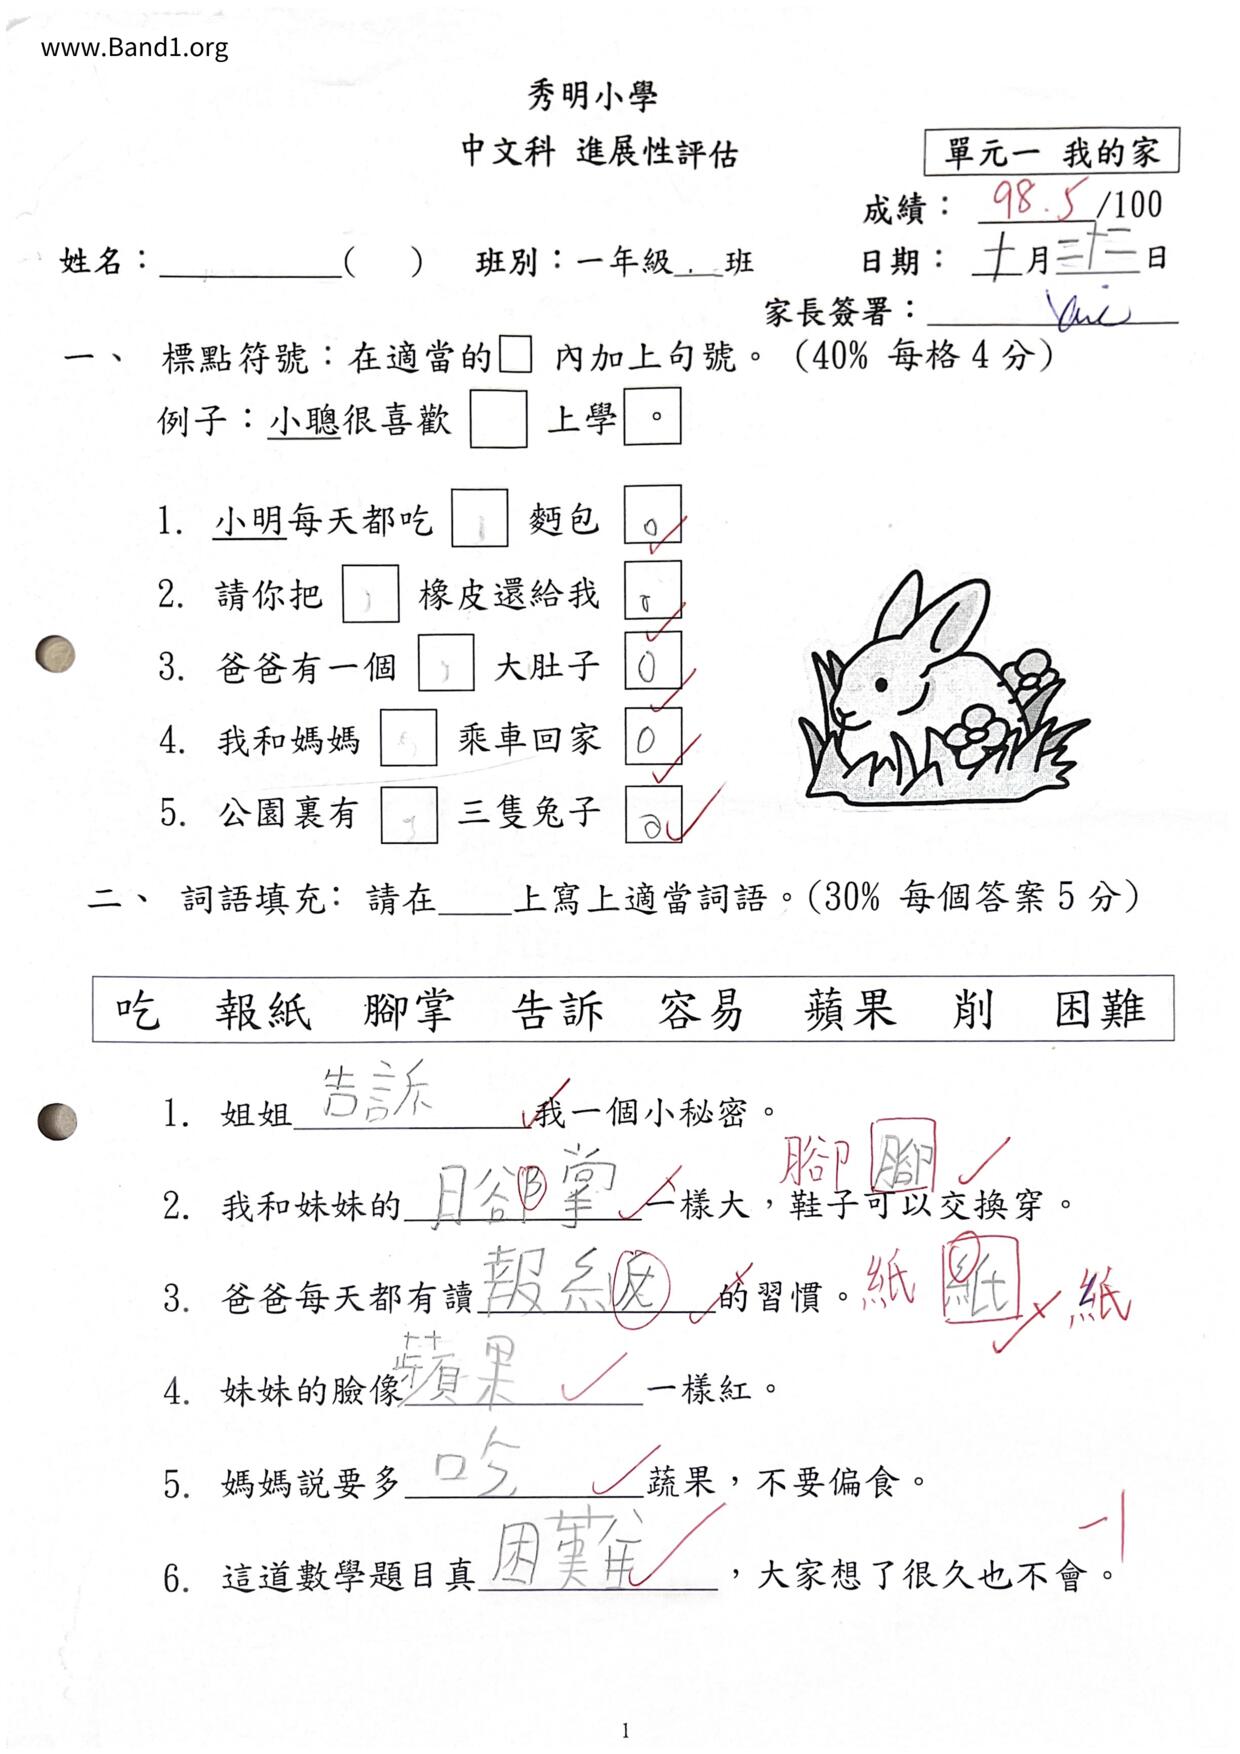 www.Band1.org
秀明小學
中文科 進展性評估
單元一 我的家
成績： 98.5/100
姓名：＿＿＿＿( ) 班別：一年級＿班 日期： 十月二十二日
家長簽署：
一、 標點符號：在適當的□ 內加上句號。（40% 每格 4 分）
例子：小聰很喜歡 □ 上學 。
1. 小明每天都吃 , 麪包 。
2. 請你把 , 橡皮還給我 。
3. 爸爸有一個 , 大肚子 。
4. 我和媽媽 , 乘車回家 。
5. 公園裏有 , 三隻兔子 。
二、 詞語填充：請在＿＿上寫上適當詞語。（30% 每個答案 5 分）
吃 報紙 腳掌 告訴 容易 蘋果 削 困難
1. 姐姐告訴我一個小秘密。
腳 腳
2. 我和妹妹的腳掌一樣大，鞋子可以交換穿。
3. 爸爸每天都有讀報紙的習慣。紙 紙 紙
4. 妹妹的臉像蘋果一樣紅。
5. 媽媽說要多吃蔬果，不要偏食。
-1
6. 這道數學題目真困難，大家想了很久也不會。
1